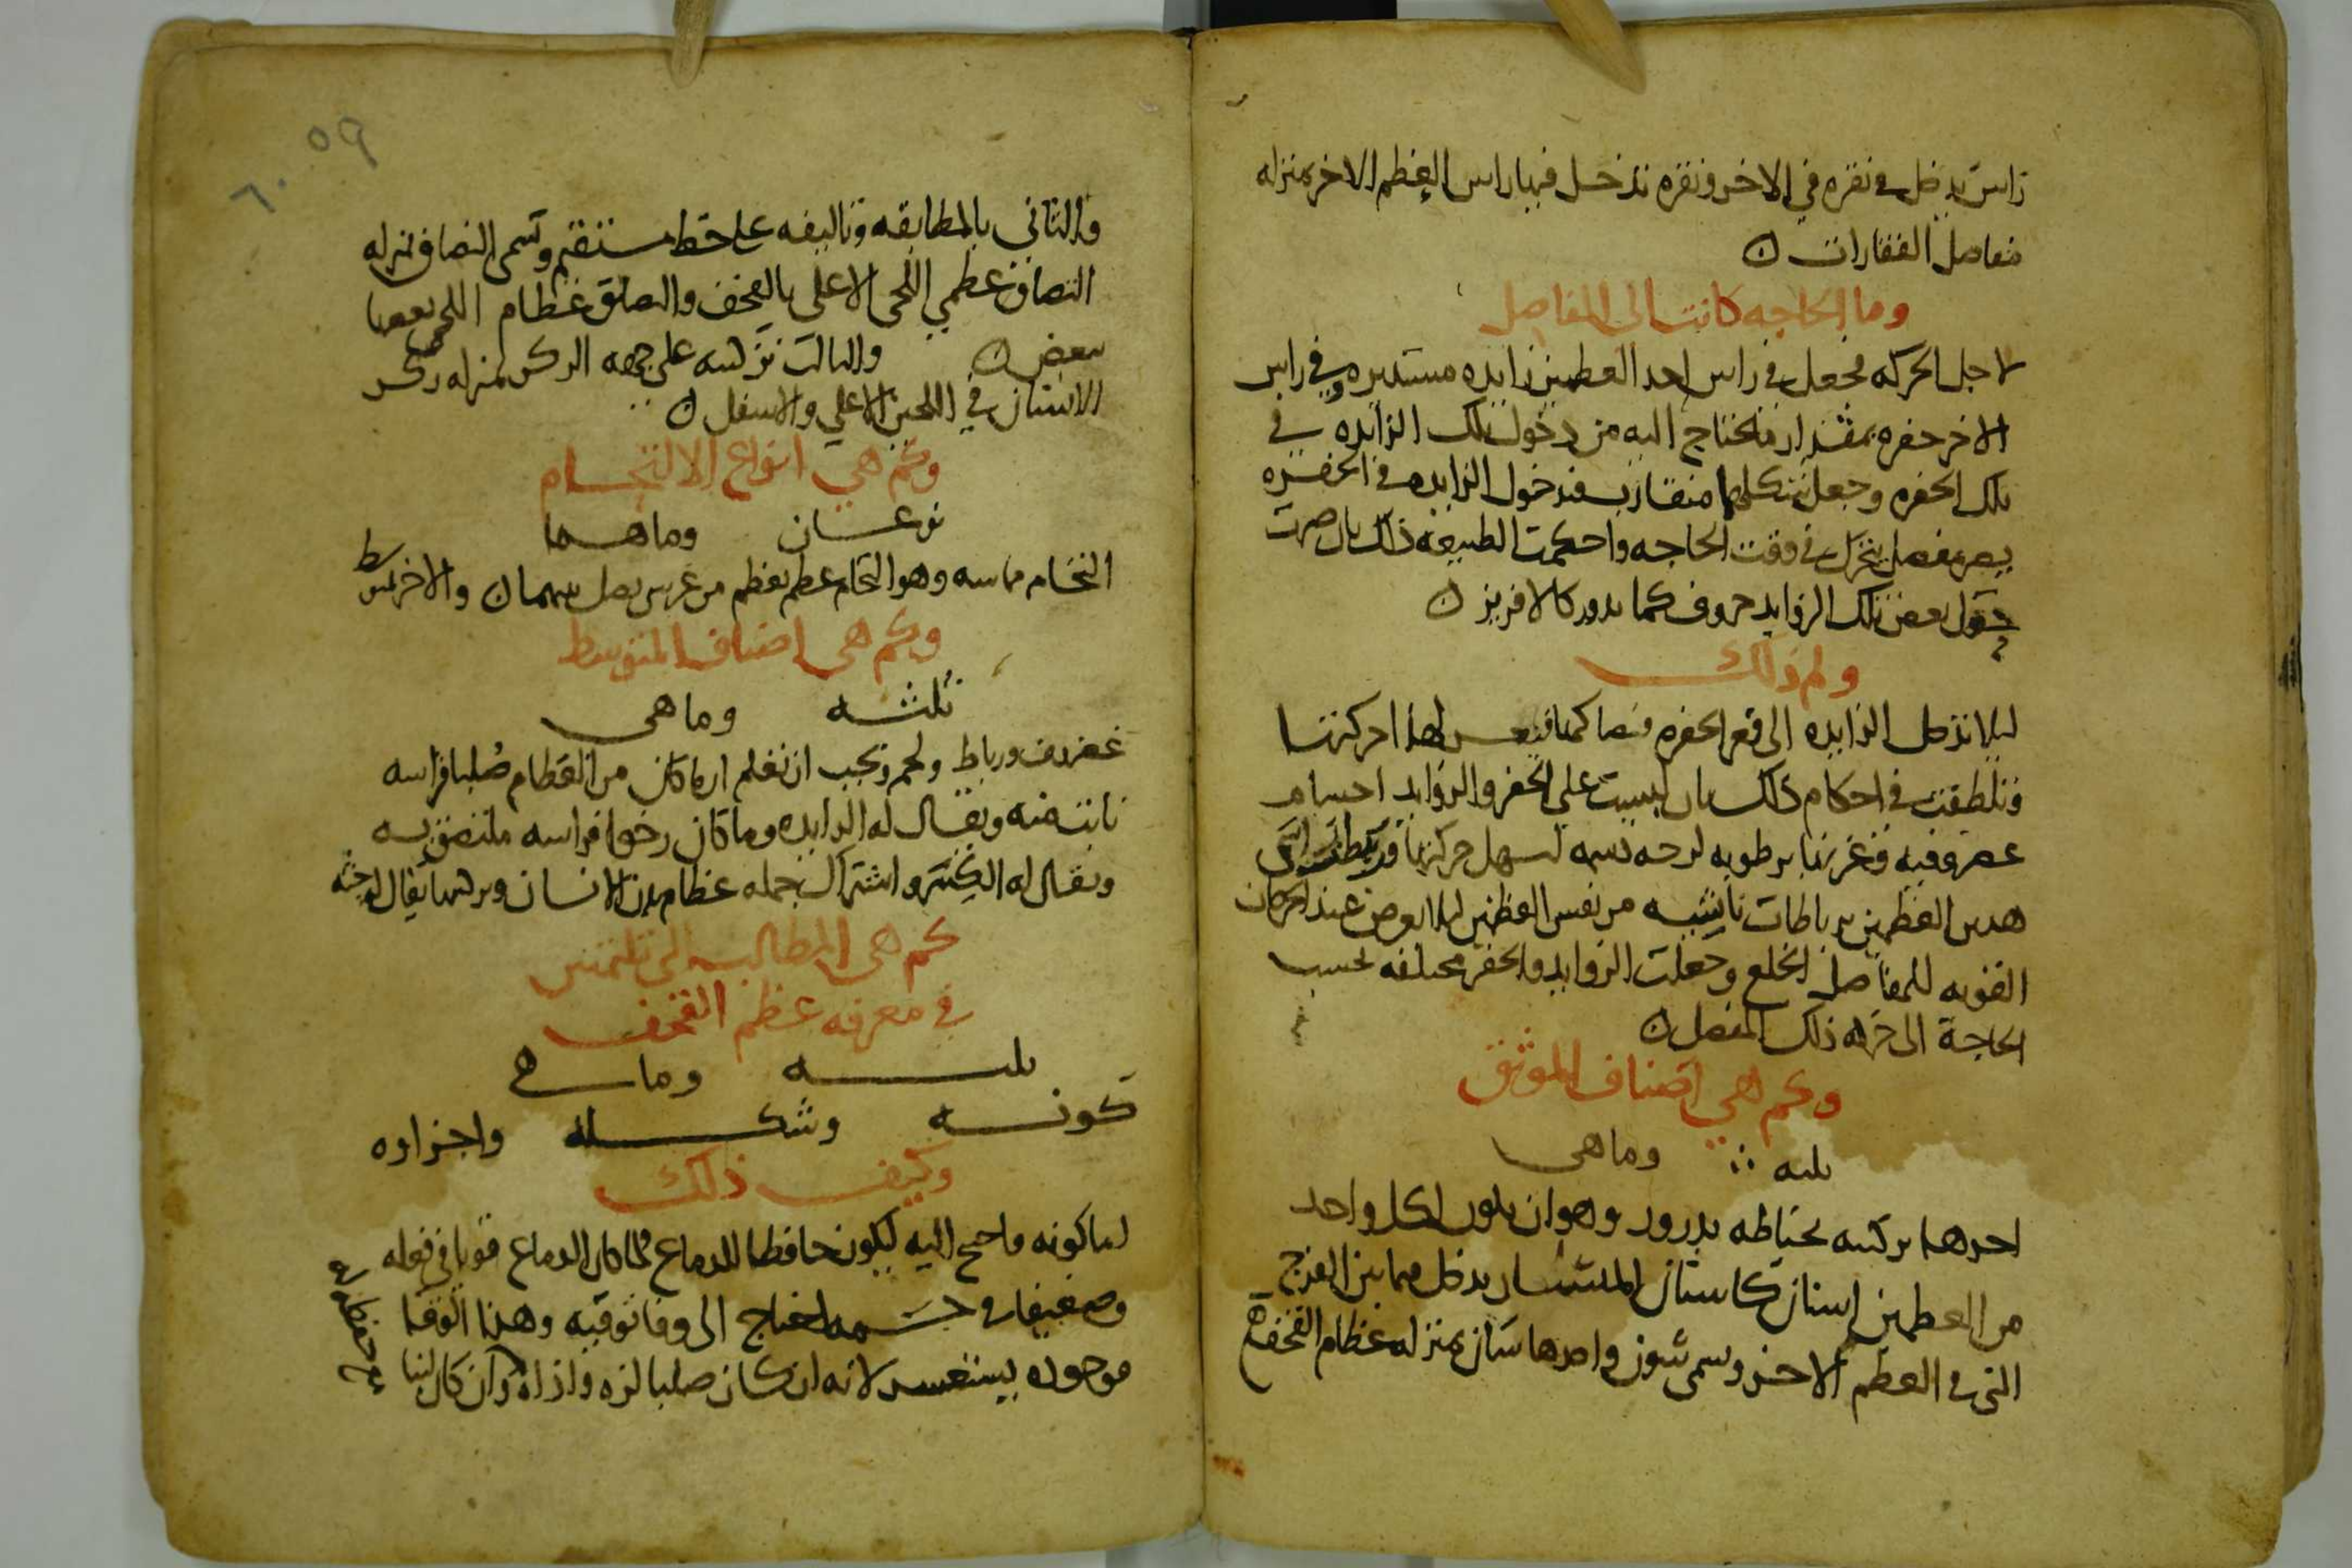 راس يدخل في نقره في الاخر ونقره تدخل فيها راس العظم الاخر بمنزله
مفاصل الفقارات ه
وما الحاجه كانت الى المفاصل
لاجل الحركه فجعل في راس احد العظمين زايده مستديره وفي راس
الاخر حفره بمقدار ما تحتاج اليه من دخول تلك الزايده في
تلك الحفره وجعل شكلهما متقارب فدخول الزايده في الحفره
يصير مفصل يتحرك في وقت الحاجه واحكمت الطبيعه ذلك بان صيرت
حول بعض تلك الزوايد حروف كما يدور كالافريز ه
ولم ذلك
ليلا تدخل الزايده الى قعر الحفره فيعسر لهذا حركتها
وتلطفت في احكام ذلك بان لبست على الحفر والزوايد اجسام
غضروفيه وغرتها برطوبه لزجه دسمه لتسهل حركتها وربطت راسي
هدين العظمين برباطات ناشيه من نفس العظمين ليلا يعرض عند الحركات
القويه للمفاصل الخلع وجعلت الزوايد والحفر مختلفه بحسب
الحاجة الى حركه ذلك المفصل ه
وكم هي اصناف الموثق
ثلثه وما هي
احدها تركيبه بخياطه بدروز وهو ان يكون لكل واحد
من العظمين اسنان كاسنان المنشار يدخل فيما بين الفرج
التي في العظم الاخر وسمى شوون واحدها شان بمنزله عظام القحف
٥٩
٦٠
والثاني بالمطابقه وتاليفه على خط مستقيم وتسمى التصاق بمنزله
التصاق عظمي اللحى الاعلى بالقحف والتصاق عظام اللحى بعضها
ببعض ه والثالث تركيبه على جهه الركز بمنزله ركز
الاسنان في اللحيين الاعلى والاسفل ه
وكم هي انواع الالتحام
نوعان وما هما
التحام مماسه وهو التحام عظم بعظم من غير شي يصل بينهما ه والاخر بمتوسط
وكم هي اصناف المتوسط
ثلثه وما هي
غضروف ورباط ولحم ويجب ان تعلم ان ما كان من العظام صلبا فراسه
نابت منه ويقال له الزايده وما كان رخوا فراسه ملتصق به
ويقال له اشتراك جمله عظام بدن الانسان وتركيبها يقال له جثه
كم هي المطالب التي تلتمس
في معرفه عظم القحف
ثلثه وما هي
كونه وشكله واجزاوه
وكيف ذلك
اما كونه فاحتيج اليه ليكون حافظا للدماغ لما كان الدماغ قويا في فعله
وضعيفا في جسمه احتاج الى وقا توقيه وهذا الوقا
موجوده يستعسر لانه ان كان صلبا لزه واذاه وان كان لينا